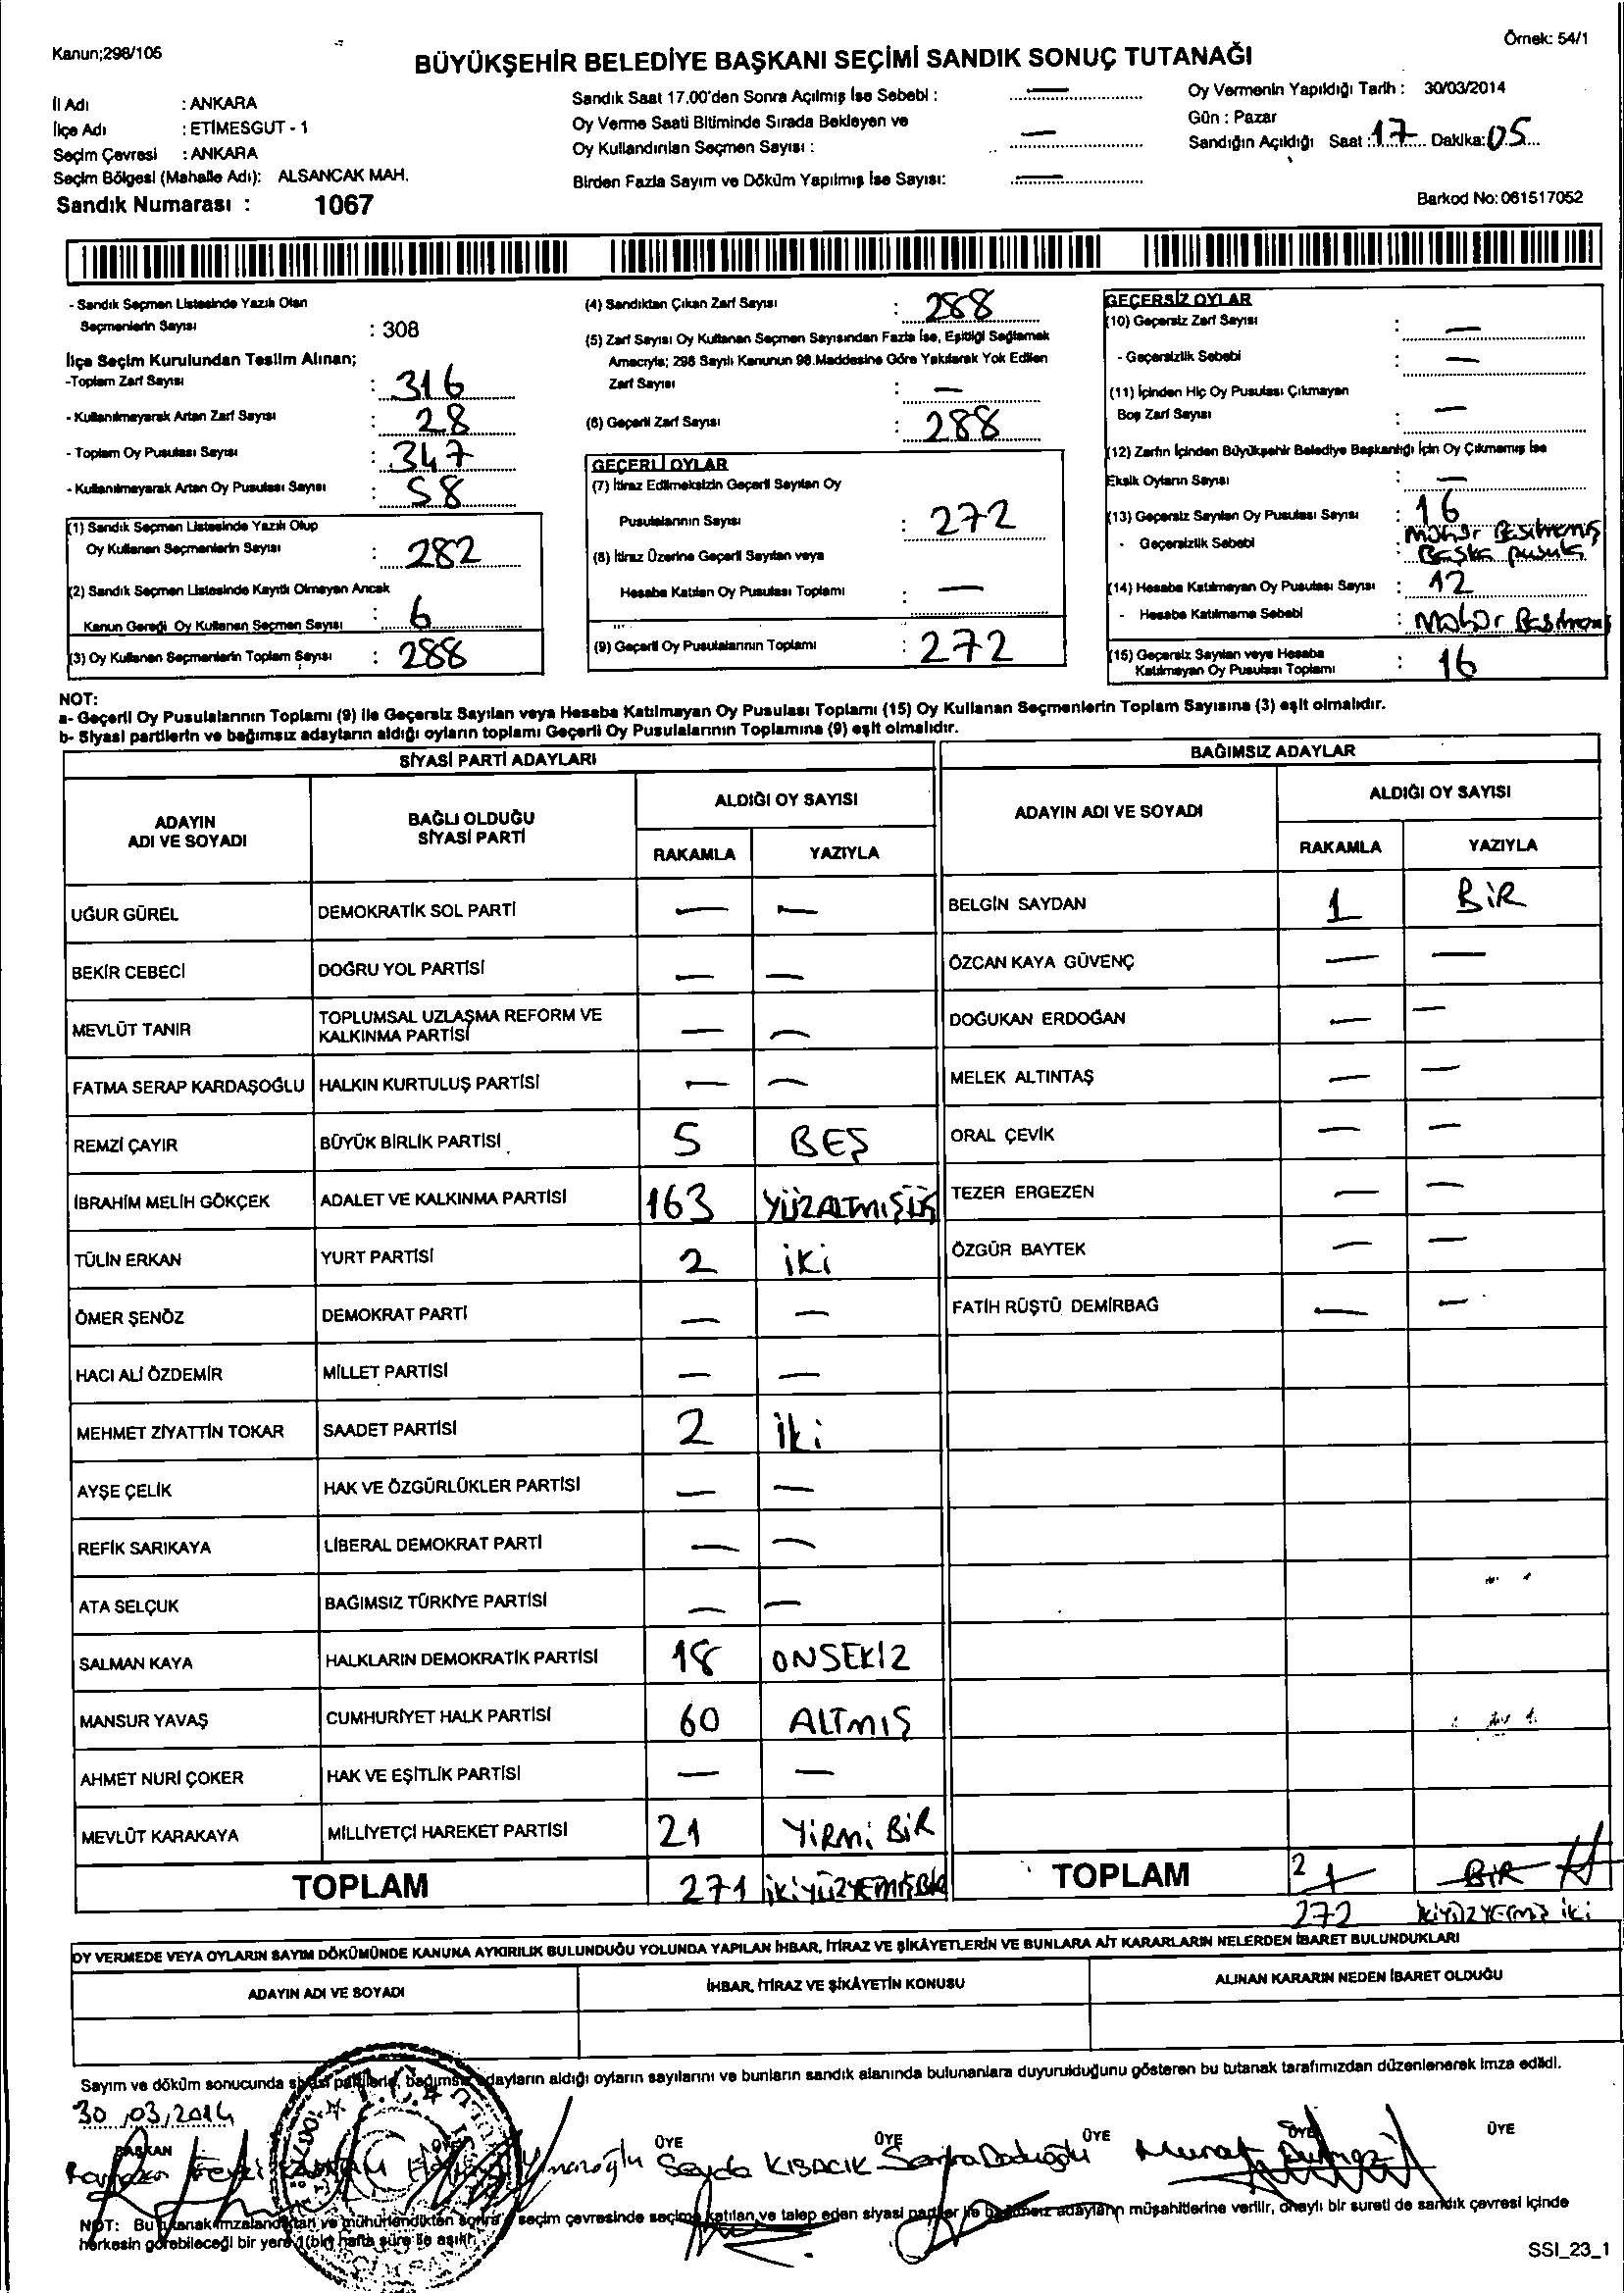 Kanun;298/105
Örnek: 54/1
BÜYÜKŞEHİR BELEDİYE BAŞKANI SEÇİMİ SANDIK SONUÇ TUTANAĞI
İl Adı : ANKARA
İlçe Adı : ETİMESGUT - 1
Seçim Çevresi : ANKARA
Seçim Bölgesi (Mahalle Adı): ALSANCAK MAH.
Sandık Numarası : 1067
Sandık Saat 17.00'den Sonra Açılmış İse Sebebi : —
Oy Verme Saati Bitiminde Sırada Bekleyen ve
Oy Kullandırılan Seçmen Sayısı : —
Birden Fazla Sayım ve Döküm Yapılmış İse Sayısı: —
Oy Vermenin Yapıldığı Tarih : 30/03/2014
Gün : Pazar
Sandığın Açıldığı Saat : 17 Dakika: 05
Barkod No: 061517052
- Sandık Seçmen Listesinde Yazılı Olan
Seçmenlerin Sayısı : 308
İlçe Seçim Kurulundan Teslim Alınan;
-Toplam Zarf Sayısı : 316
- Kullanılmayarak Artan Zarf Sayısı : 28
- Toplam Oy Pusulası Sayısı : 347
- Kullanılmayarak Artan Oy Pusulası Sayısı : 58
(1) Sandık Seçmen Listesinde Yazılı Olup
Oy Kullanan Seçmenlerin Sayısı : 282
(2) Sandık Seçmen Listesinde Kayıtlı Olmayan Ancak
Kanun Gereği Oy Kullanan Seçmen Sayısı : 6
(3) Oy Kullanan Seçmenlerin Toplam Sayısı : 288
(4) Sandıktan Çıkan Zarf Sayısı : 288
(5) Zarf Sayısı Oy Kullanan Seçmen Sayısından Fazla İse, Eşitliği Sağlamak
Amacıyla; 298 Sayılı Kanunun 98.Maddesine Göre Yakılarak Yok Edilen
Zarf Sayısı : —
(6) Geçerli Zarf Sayısı : 288
GEÇERLİ OYLAR
(7) İtiraz Edilmeksizin Geçerli Sayılan Oy
Pusulalarının Sayısı : 272
(8) İtiraz Üzerine Geçerli Sayılan veya
Hesaba Katılan Oy Pusulası Toplamı : —
(9) Geçerli Oy Pusulalarının Toplamı : 272
GEÇERSİZ OYLAR
(10) Geçersiz Zarf Sayısı : —
- Geçersizlik Sebebi : —
(11) İçinden Hiç Oy Pusulası Çıkmayan
Boş Zarf Sayısı : —
(12) Zarfın İçinden Büyükşehir Belediye Başkanlığı İçin Oy Çıkmamış İse
Eksik Oyların Sayısı : —
(13) Geçersiz Sayılan Oy Pusulası Sayısı : 16
- Geçersizlik Sebebi :
(14) Hesaba Katılmayan Oy Pusulası Sayısı : 12
- Hesaba Katılmama Sebebi :
(15) Geçersiz Sayılan veya Hesaba
Katılmayan Oy Pusulası Toplamı : 16
NOT:
a- Geçerli Oy Pusulalarının Toplamı (9) ile Geçersiz Sayılan veya Hesaba Katılmayan Oy Pusulası Toplamı (15) Oy Kullanan Seçmenlerin Toplam Sayısına (3) eşit olmalıdır.
b- Siyasi partilerin ve bağımsız adayların aldığı oyların toplamı Geçerli Oy Pusulalarının Toplamına (9) eşit olmalıdır.
SİYASİ PARTİ ADAYLARI
ADAYIN ADI VE SOYADI
BAĞLI OLDUĞU SİYASİ PARTİ
ALDIĞI OY SAYISI
RAKAMLA YAZIYLA
UĞUR GÜREL DEMOKRATİK SOL PARTİ — —
BEKİR CEBECİ DOĞRU YOL PARTİSİ — —
MEVLÜT TANIR TOPLUMSAL UZLAŞMA REFORM VE KALKINMA PARTİSİ — —
FATMA SERAP KARDAŞOĞLU HALKIN KURTULUŞ PARTİSİ — —
REMZİ ÇAYIR BÜYÜK BİRLİK PARTİSİ 5 BEŞ
İBRAHİM MELİH GÖKÇEK ADALET VE KALKINMA PARTİSİ 163 YÜZALTMIŞÜÇ
TÜLİN ERKAN YURT PARTİSİ 2 iKi
ÖMER ŞENÖZ DEMOKRAT PARTİ — —
HACI ALİ ÖZDEMİR MİLLET PARTİSİ — —
MEHMET ZİYATTİN TOKAR SAADET PARTİSİ 2 iki
AYŞE ÇELİK HAK VE ÖZGÜRLÜKLER PARTİSİ — —
REFİK SARIKAYA LİBERAL DEMOKRAT PARTİ — —
ATA SELÇUK BAĞIMSIZ TÜRKİYE PARTİSİ — —
SALMAN KAYA HALKLARIN DEMOKRATİK PARTİSİ 18 ONSEKİZ
MANSUR YAVAŞ CUMHURİYET HALK PARTİSİ 60 ALTMIŞ
AHMET NURİ ÇOKER HAK VE EŞİTLİK PARTİSİ — —
MEVLÜT KARAKAYA MİLLİYETÇİ HAREKET PARTİSİ 21 YİRMİ BİR
TOPLAM 271
BAĞIMSIZ ADAYLAR
ADAYIN ADI VE SOYADI
ALDIĞI OY SAYISI
RAKAMLA YAZIYLA
BELGİN SAYDAN 1 BİR
ÖZCAN KAYA GÜVENÇ — —
DOĞUKAN ERDOĞAN — —
MELEK ALTINTAŞ — —
ORAL ÇEVİK — —
TEZER ERGEZEN — —
ÖZGÜR BAYTEK — —
FATİH RÜŞTÜ DEMİRBAĞ — —
TOPLAM 1 BİR
272
OY VERMEDE VEYA OYLARIN SAYIM DÖKÜMÜNDE KANUNA AYKIRILIK BULUNDUĞU YOLUNDA YAPILAN İHBAR, İTİRAZ VE ŞİKÂYETLERİN VE BUNLARA AİT KARARLARIN NELERDEN İBARET BULUNDUKLARI
ADAYIN ADI VE SOYADI
İHBAR, İTİRAZ VE ŞİKÂYETİN KONUSU
ALINAN KARARIN NEDEN İBARET OLDUĞU
Sayım ve döküm sonucunda siyasi partilerle, bağımsız adayların aldığı oyların sayılarını ve bunların sandık alanında bulunanlara duyurulduğunu gösteren bu tutanak tarafımızdan düzenlenerek imza edildi.
30 /03/2014
BAŞKAN ÜYE ÜYE ÜYE ÜYE ÜYE
Seyda KISACIK Murat
NOT: Bu tutanak imzalandıktan ve mühürlendikten sonra seçim çevresinde seçime katılan ve talep eden siyasi partiler ile bağımsız adayların müşahitlerine verilir, onaylı bir sureti de sandık çevresi içinde
herkesin görebileceği bir yere 1(bir) hafta süre ile asılır.
SSI_23_1